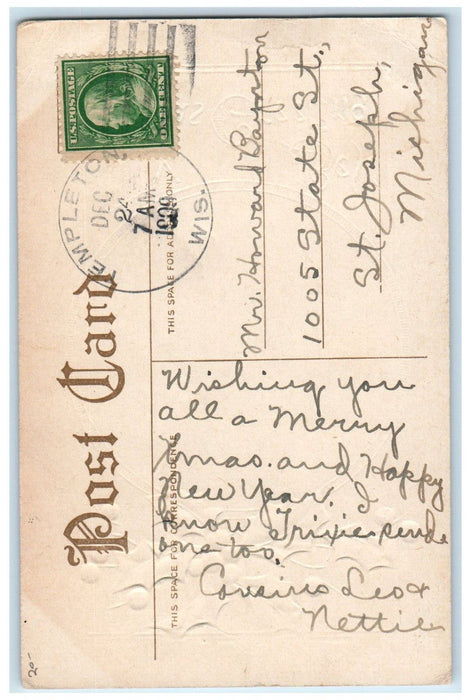 U.S. POSTAGE
ONE CENT
TEMPLETON,
DEC
24
7 AM
1909
WIS.
Post Card
THIS SPACE FOR ADDRESS ONLY
Mr. Howard Baynton
1005 State St.,
St. Joseph,
Michigan
THIS SPACE FOR CORRESPONDENCE
Wishing you
all a Merry
Xmas. and Happy
New Year. I
know Trixie sends
one too.
Cousins Leo &
Nettie
20-